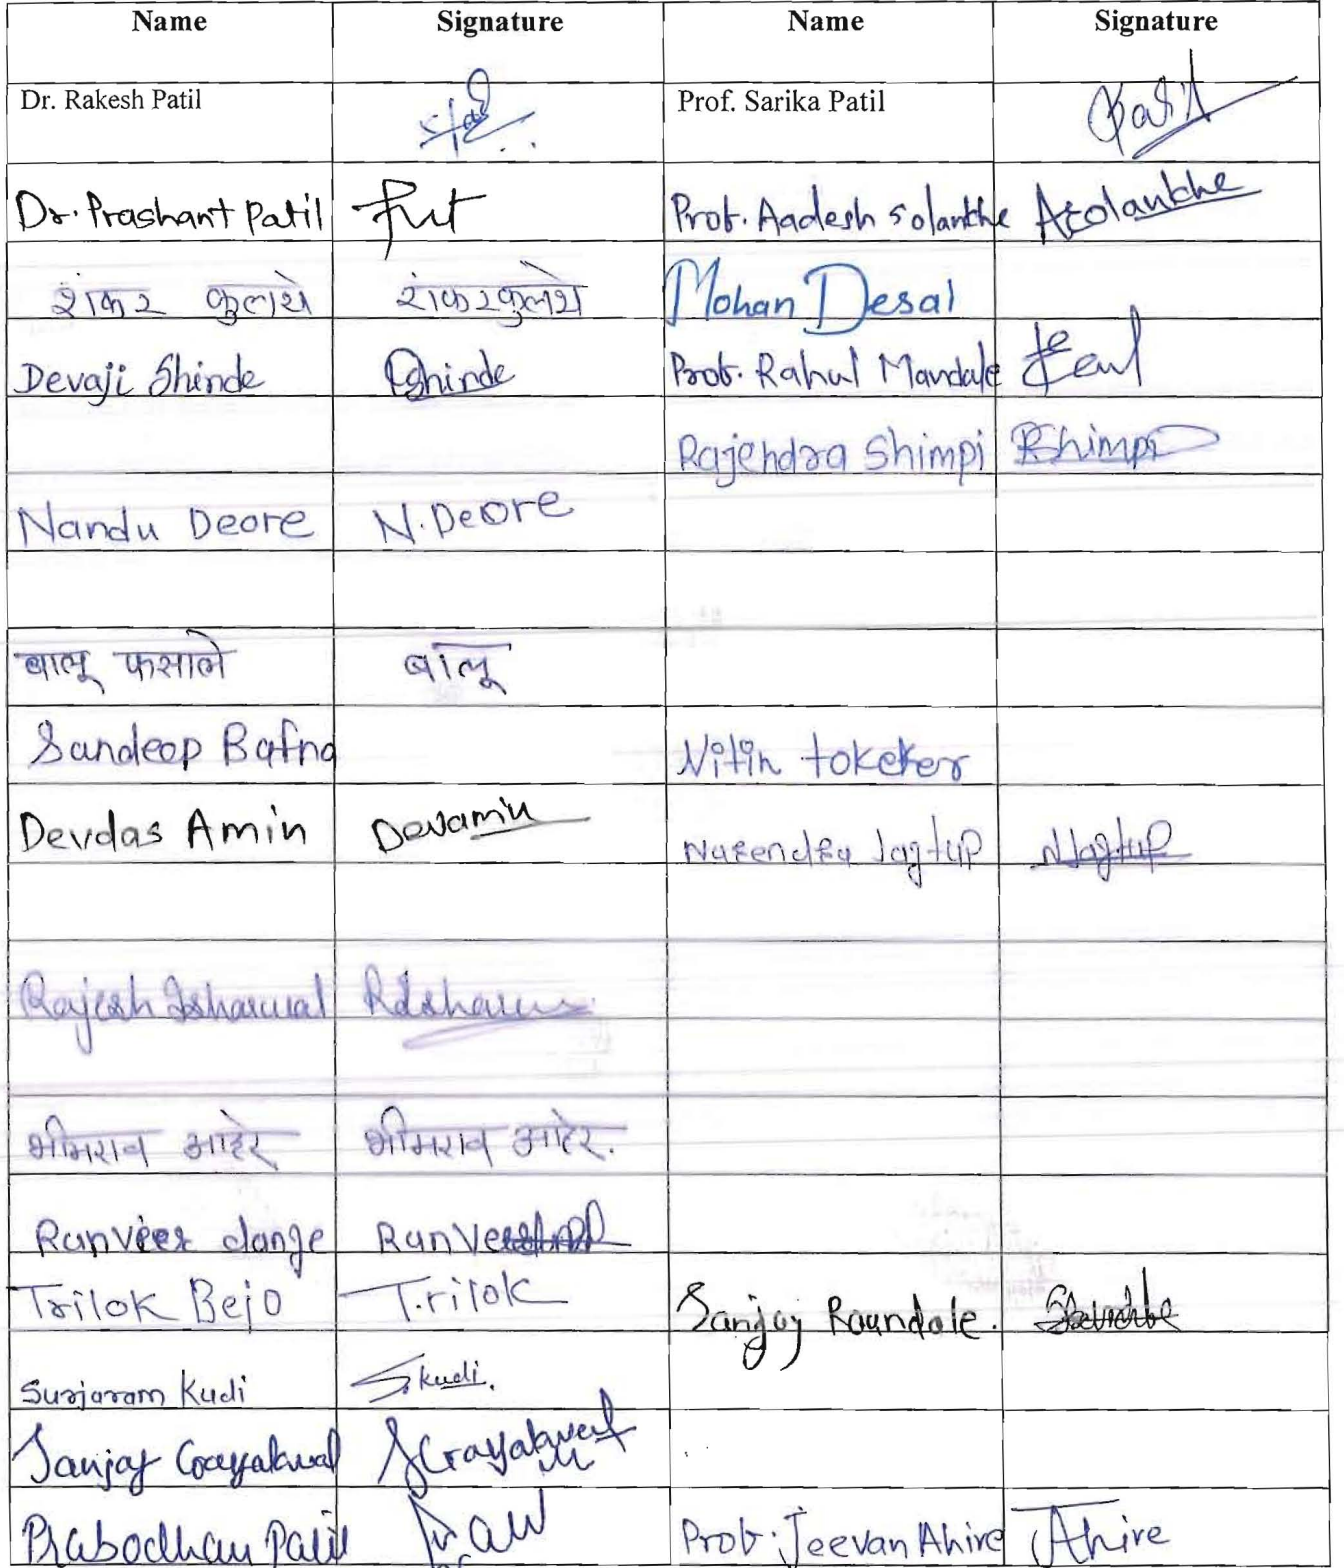 Name Signature Name Signature
Dr. Rakesh Patil Prof. Sarika Patil Patil
Dr. Prashant Patil Prof. Aadesh Solankhe ASolankhe
शंकर कुलथे शंकर कुलथे Mohan Desal
Devaji Shinde DShinde Prof. Rahul Mandale
Rajendra Shimpi RShimpi
Nandu Deore N. Deore
बालू फसाले बालू
Sandeep Bafna Nitin tokeker
Devdas Amin Devamin Narendra Jagtup NJagtup
Rajesh Isharwal
भीमराव आहेर भीमराव आहेर.
Ranveer dange Ranveer
Trilok Bejo Trilok Sanjay Raundale.
Surjaram Kudi S. kudi.
Sanjay Gayakwad SGayakwad
Prabodhan Patil Prof. Jeevan Ahire JAhire